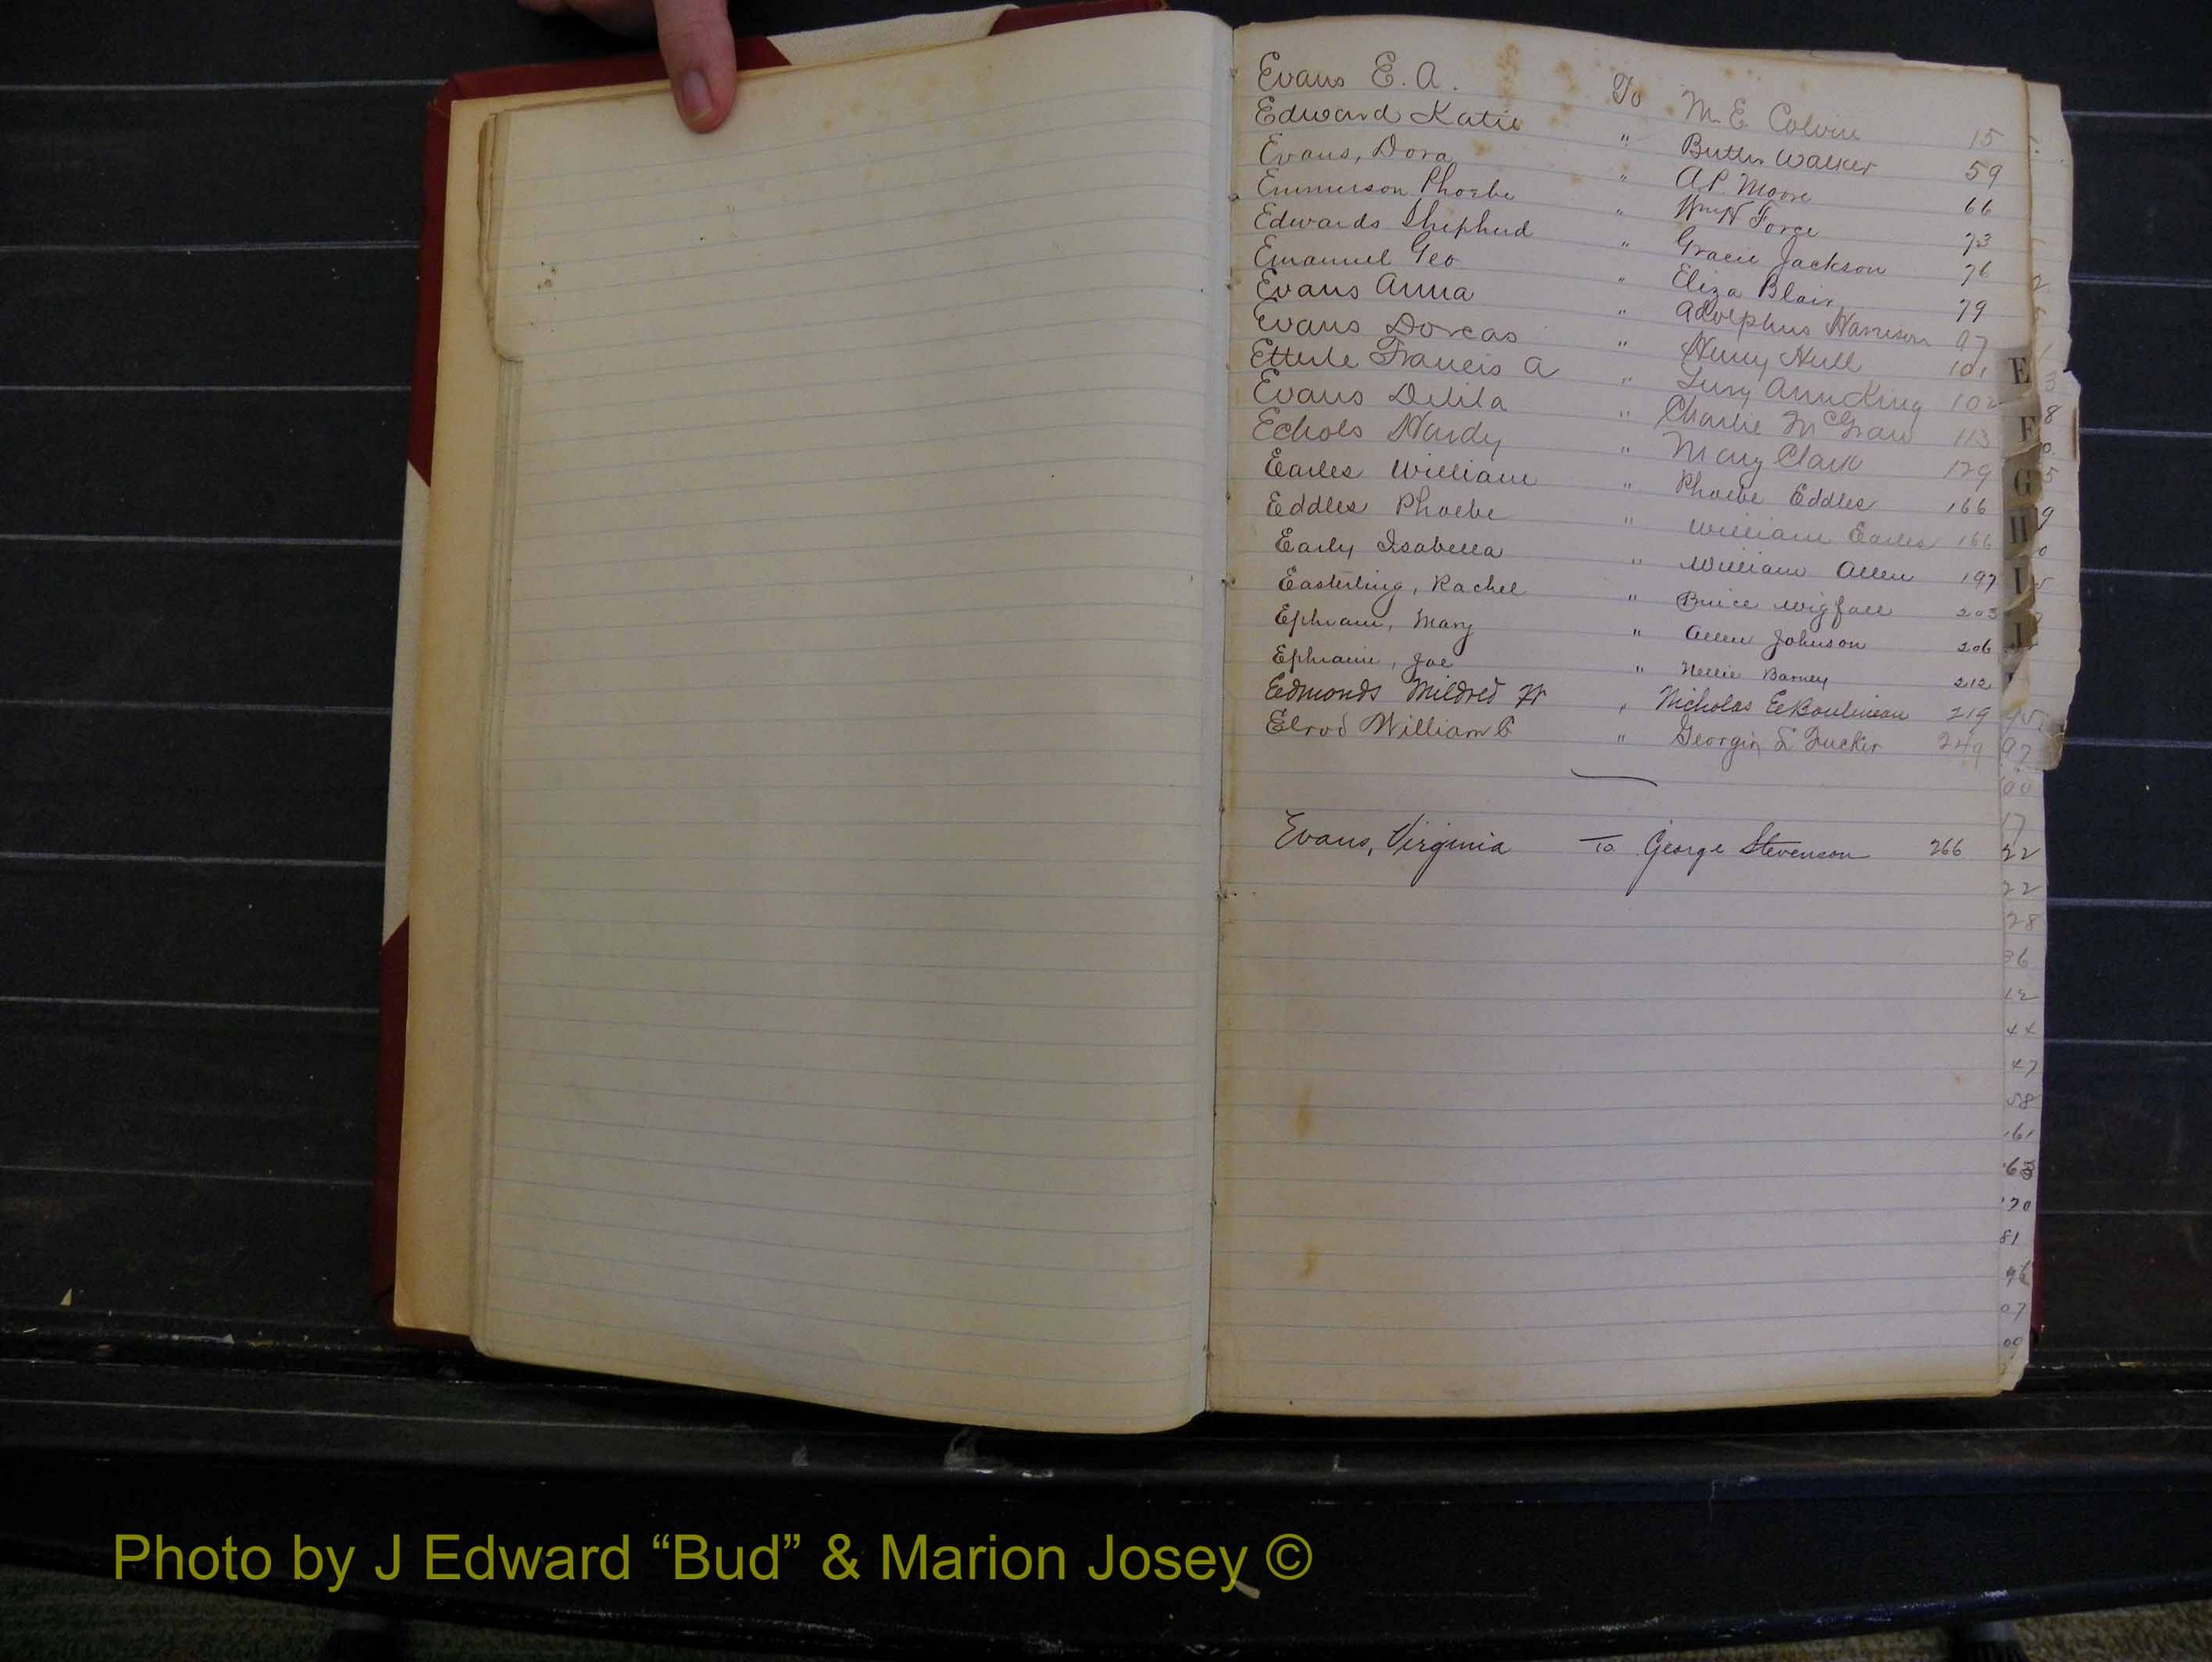 Evans E. A. To M. E. Colvin 15
Edward Katie " Butler Walker 59
Evans, Dora " A. P. Moore 66
Emmerson Phoebe " Wm H Force 73
Edwards Shepherd " Gracie Jackson 76
Emanuel Geo. " Eliza Blair 79
Evans Anna " Adolphus Harrison 97
Evans Dorcas " Henry Hull 101
Etterle Francis A " Lucy Ann King 102
Evans Delila " Charlie McGraw 113
Echols Hardy " Mary Clark 129
Earles William " Phoebe Eddles 166
Eddles Phoebe " William Earles 166
Early Isabella " William Allen 197
Easterling, Rachel " Bruce Wigfall 203
Ephraim, Mary " Allen Johnson 206
Ephraim, Joe " Nellie Barney 212
Edmonds Mildred H " Nicholas E. Boulineau 219
Elrod William " Georgia L. Tucker 249
Evans, Virginia To George Stevenson 266
E
F
G
H
I
J
97
00
17
22
22
28
36
12
44
47
58
161
63
70
81
96
07
09
Photo by J Edward “Bud” & Marion Josey ©